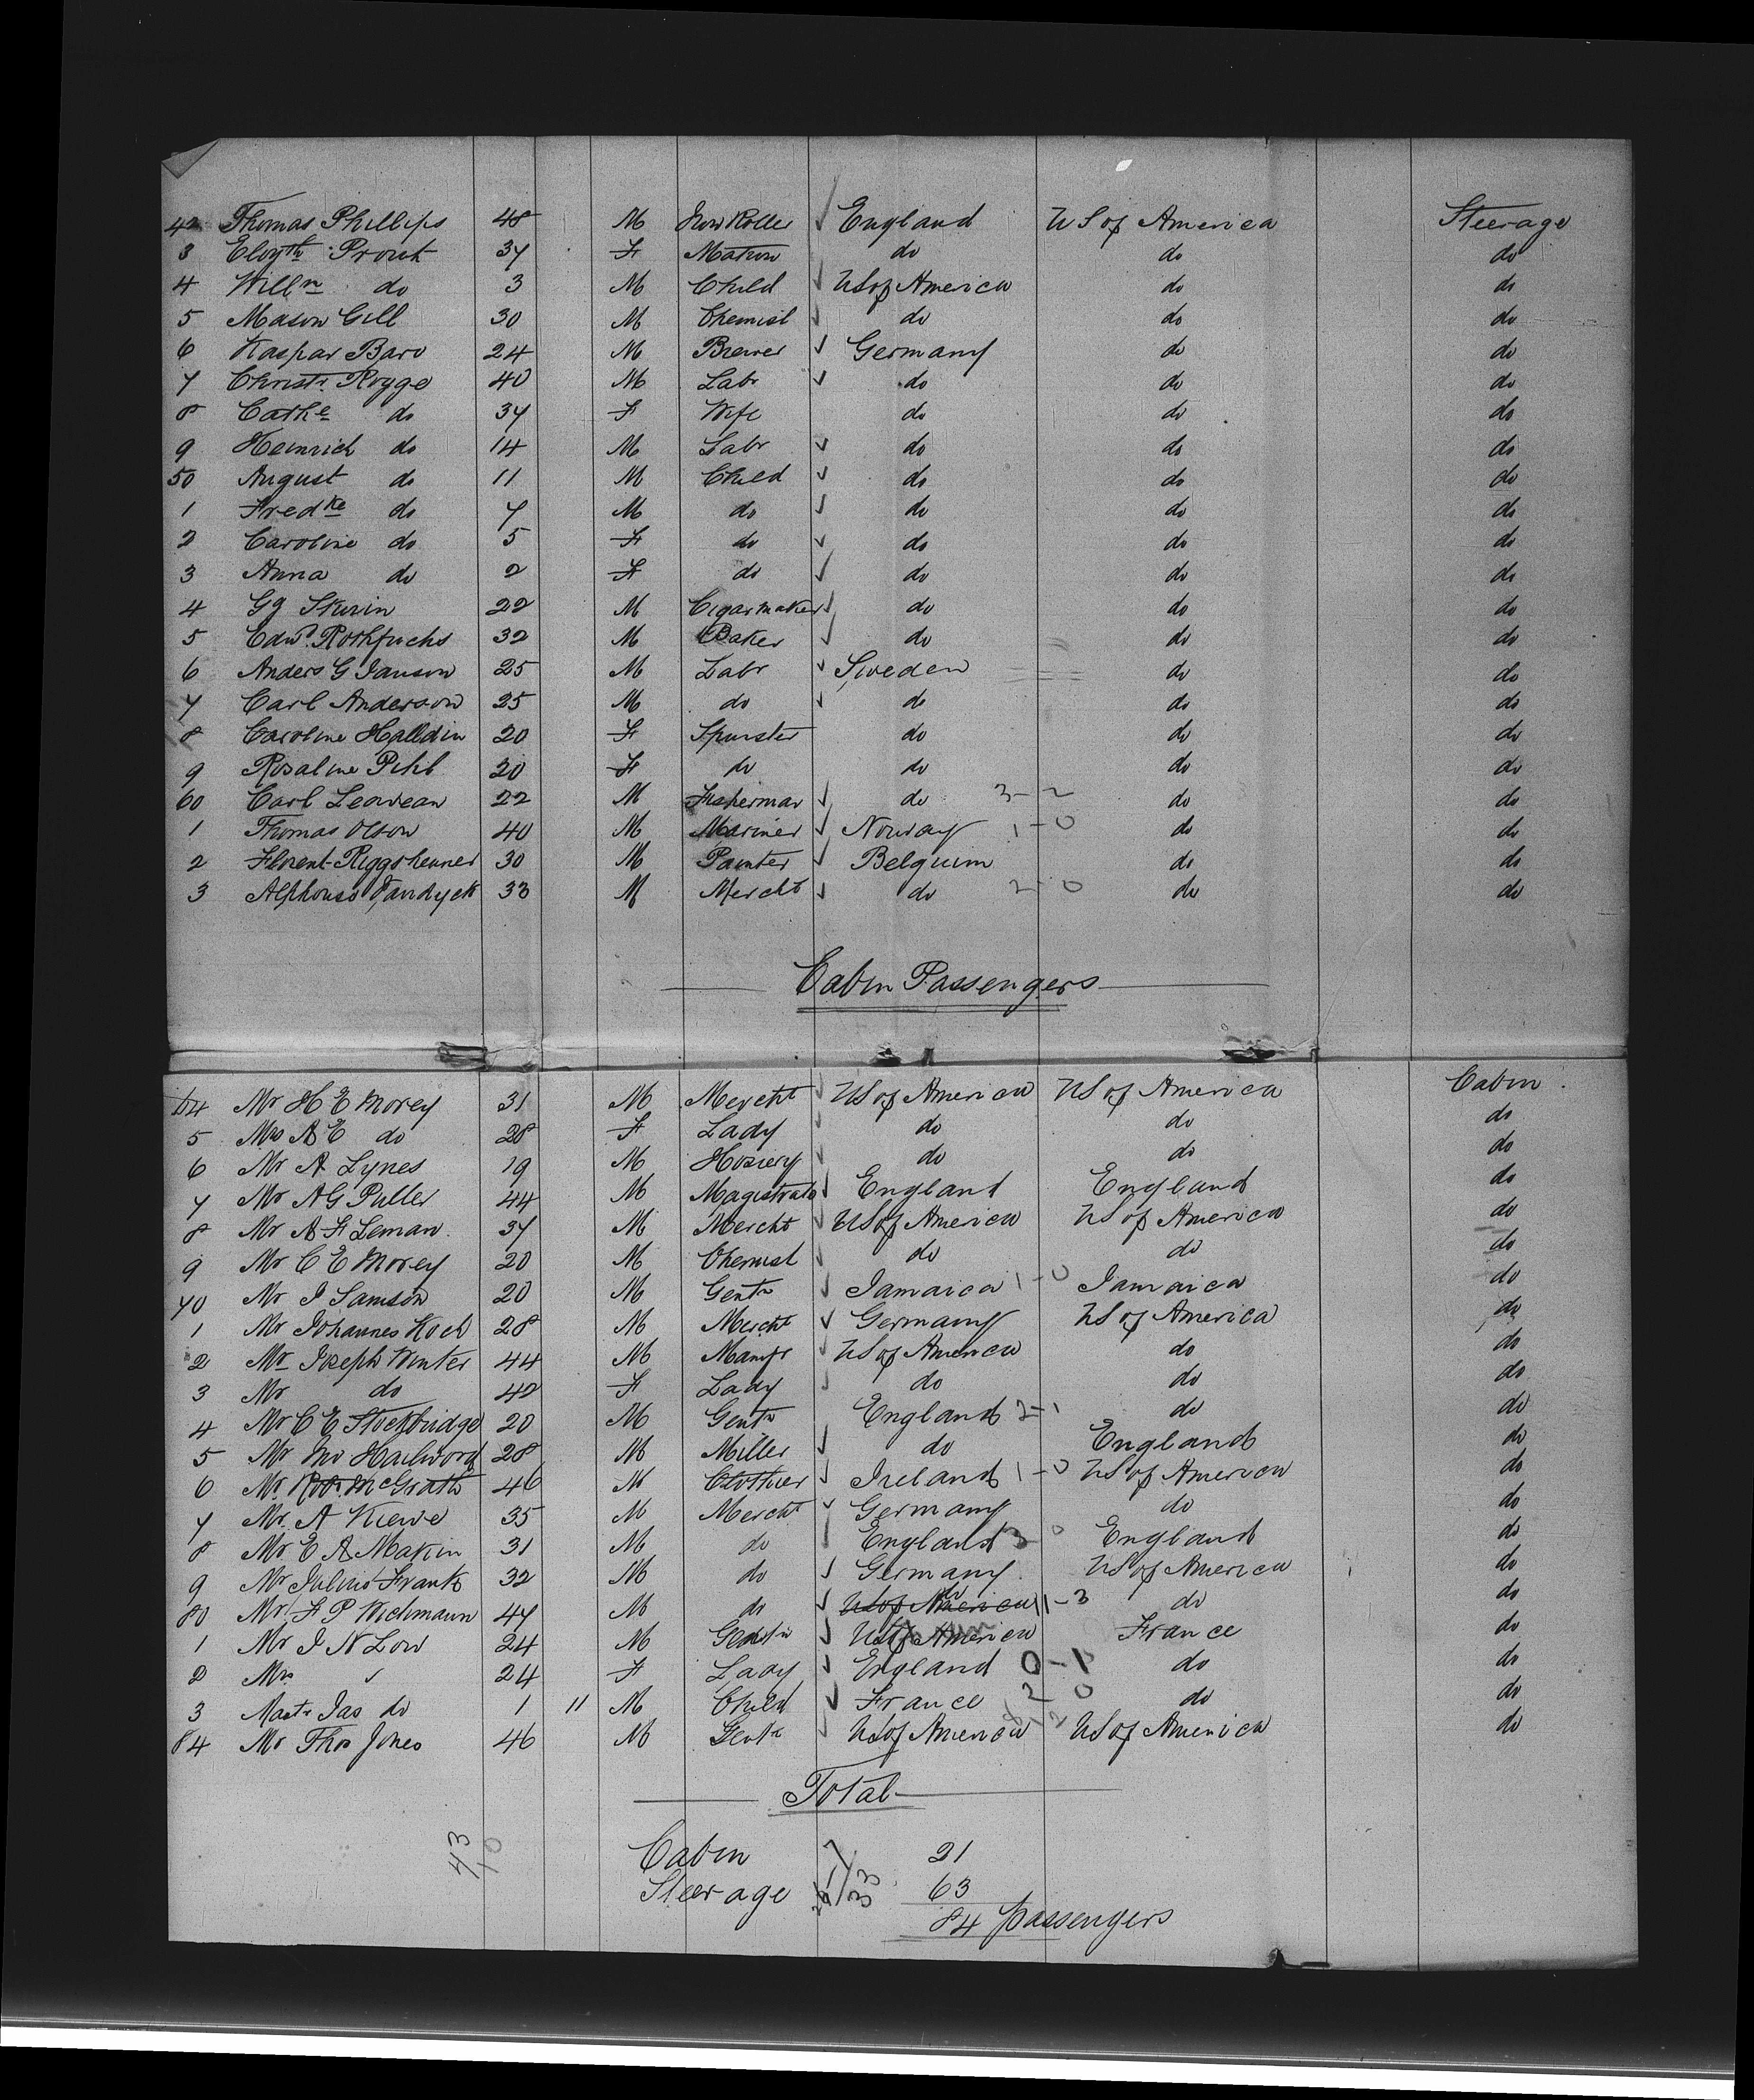 42 Thomas Phillips 48 M Iron Roller England US of America Steerage
3 Elizth Prout 37 F Matron do do do
4 Willm do 3 M Child US of America do do
5 Mason Gill 30 M Chemist do do do
6 Kaspar Baro 24 M Brewer Germany do do
7 Christn Rygge 40 M Labr do do do
8 Cathe do 37 F Wife do do do
9 Heinrich do 14 M Labr do do do
50 August do 11 M Child do do do
1 Fredke do 7 M do do do do
2 Caroline do 5 F do do do do
3 Anna do 2 F do do do do
4 Gg 22 M Cigarmaker do do do
5 Edwd Rothfuchs 32 M Baker do do do
6 Anders G Janson 25 M Labr Sweden do do
7 Carl Anderson 25 M do do do do
8 Caroline Halldin 20 F Spinster do do do
9 Rosaline Pihl 20 F do do do do
60 Carl 22 M Fisherman do 3-2 do do
1 Thomas Olson 40 M Mariner Norway 1-0 do do
2 Florent 30 M Painter Belgium do do
3 Alphonso Vandyck 33 M Mercht do 2-0 do do
Cabin Passengers
64 Mr H E Morey 31 M Mercht US of America US of America Cabin
5 Mrs A E do 28 F Lady do do do
6 Mr A Lynes 19 M Hosiery do do do
7 Mr A G Puller 44 M Magistrate England England do
8 Mr A F Leman 37 M Mercht US of America US of America do
9 Mr C E Morey 20 M Chemist do do do
70 Mr J Samson 20 M Gentn Jamaica 1-0 Jamaica do
1 Mr Johannes Koch 28 M Mercht Germany US of America do
2 Mr Joseph Winter 44 M Manfr US of America do do
3 Mr do 42 F Lady do do do
4 Mr C E Stockbridge 20 M Gentn England 2-1 do do
5 Mr Jno Hailword 28 M Miller do England do
6 Mr Robt McGrath 46 M Clothier Ireland 1-0 US of America do
7 Mr A Kiewe 35 M Mercht Germany do do
8 Mr E A Makin 31 M do England 3 0 England do
9 Mr Julius Frank 32 M do Germany US of America do
80 Mr F P Wichmann 47 M do US of America do 11-3 do do
1 Mr J N Low 24 M Gentn US of America France do
2 Mrs " 24 F Lady England 0-1 do do
3 Mastr Jas do 1 11 M Child France 2 0 do do
84 Mr Thos Jones 46 M Gentn US of America US of America do
Total
43 10
Cabin 21
Steerage 33 63
84 passengers